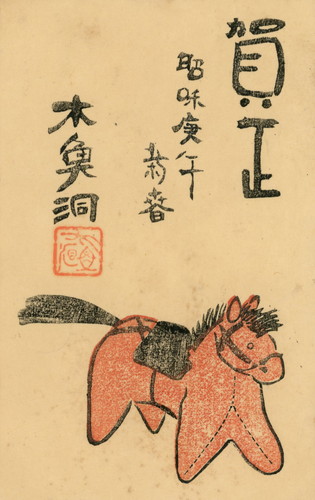 賀正
昭和庚午
新春
木魚洞